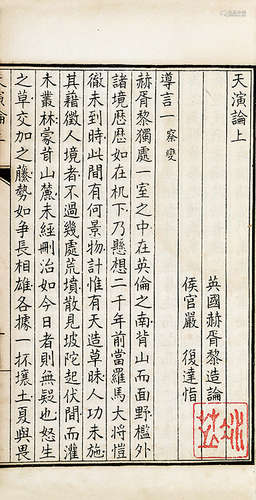 天演論上
英國赫胥黎造論
侯官嚴　復達恉
導言一 察變
赫胥黎獨處一室之中在英倫之南背山而面野檻外
諸境歷歷如在机下乃懸想二千年前當羅馬大將愷
徹未到時此間有何景物計惟有天造草昧人功未施
其藉徵人境者不過幾處荒墳散見坡陀起伏間而灌
木叢林蒙茸山麓未經刪治如今日者則無疑也怒生
之草交加之藤勢如爭長相雄各據一抔壤土夏與畏